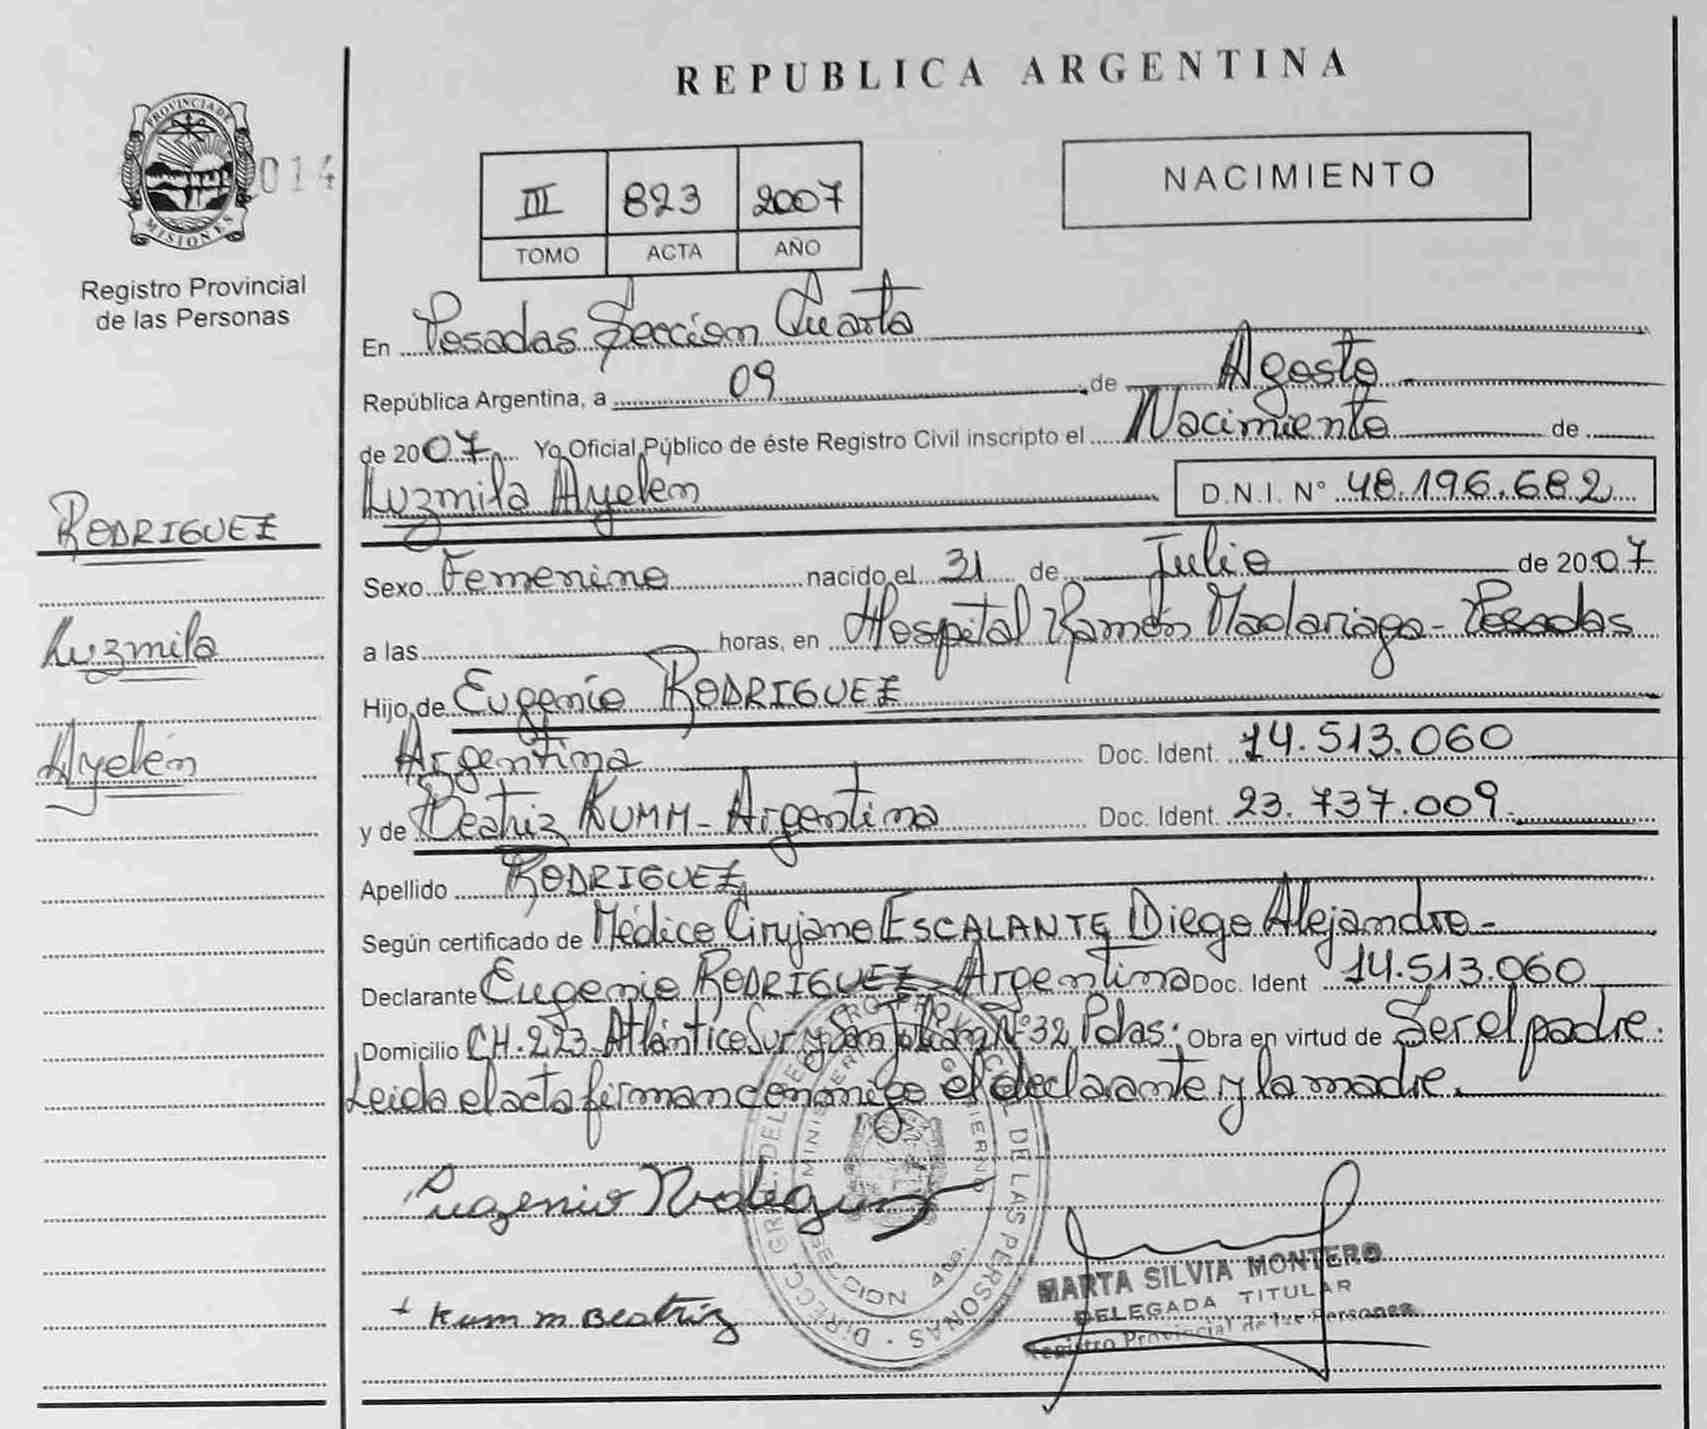 REPUBLICA ARGENTINA
PROVINCIA DE
MISIONES
014
Registro Provincial
de las Personas
NACIMIENTO
III 823 2007
TOMO ACTA AÑO
RODRIGUEZ
Luzmila
Ayelén
En Posadas Sección Cuarta
República Argentina, a 09 de Agosto
de 2007. Yo Oficial Público de éste Registro Civil inscripto el Nacimiento de
Luzmila Ayelen D.N.I. N° 48.196.682
Sexo Femenino nacido el 31 de Julio de 2007
a las horas, en Hospital Ramón Madariaga - Posadas
Hijo de Eugenio RODRIGUEZ
Argentina Doc. Ident. 14.513.060
y de Beatriz KUMM - Argentina Doc. Ident. 23.737.009.
Apellido RODRIGUEZ
Según certificado de Médico Cirujano ESCALANTE Diego Alejandro -
Declarante Eugenio RODRIGUEZ - Argentina Doc. Ident 14.513.060
Domicilio CH. 223 Atlántico Sur y San Julian N° 32 Pdas. Obra en virtud de Ser el padre.
Leida el acta firman conmigo el declarante y la madre.
Eugenio Rodriguez
Kumm Beatriz
MARTA SILVIA MONTERO
DELEGADA TITULAR
Registro Provincial de las Personas